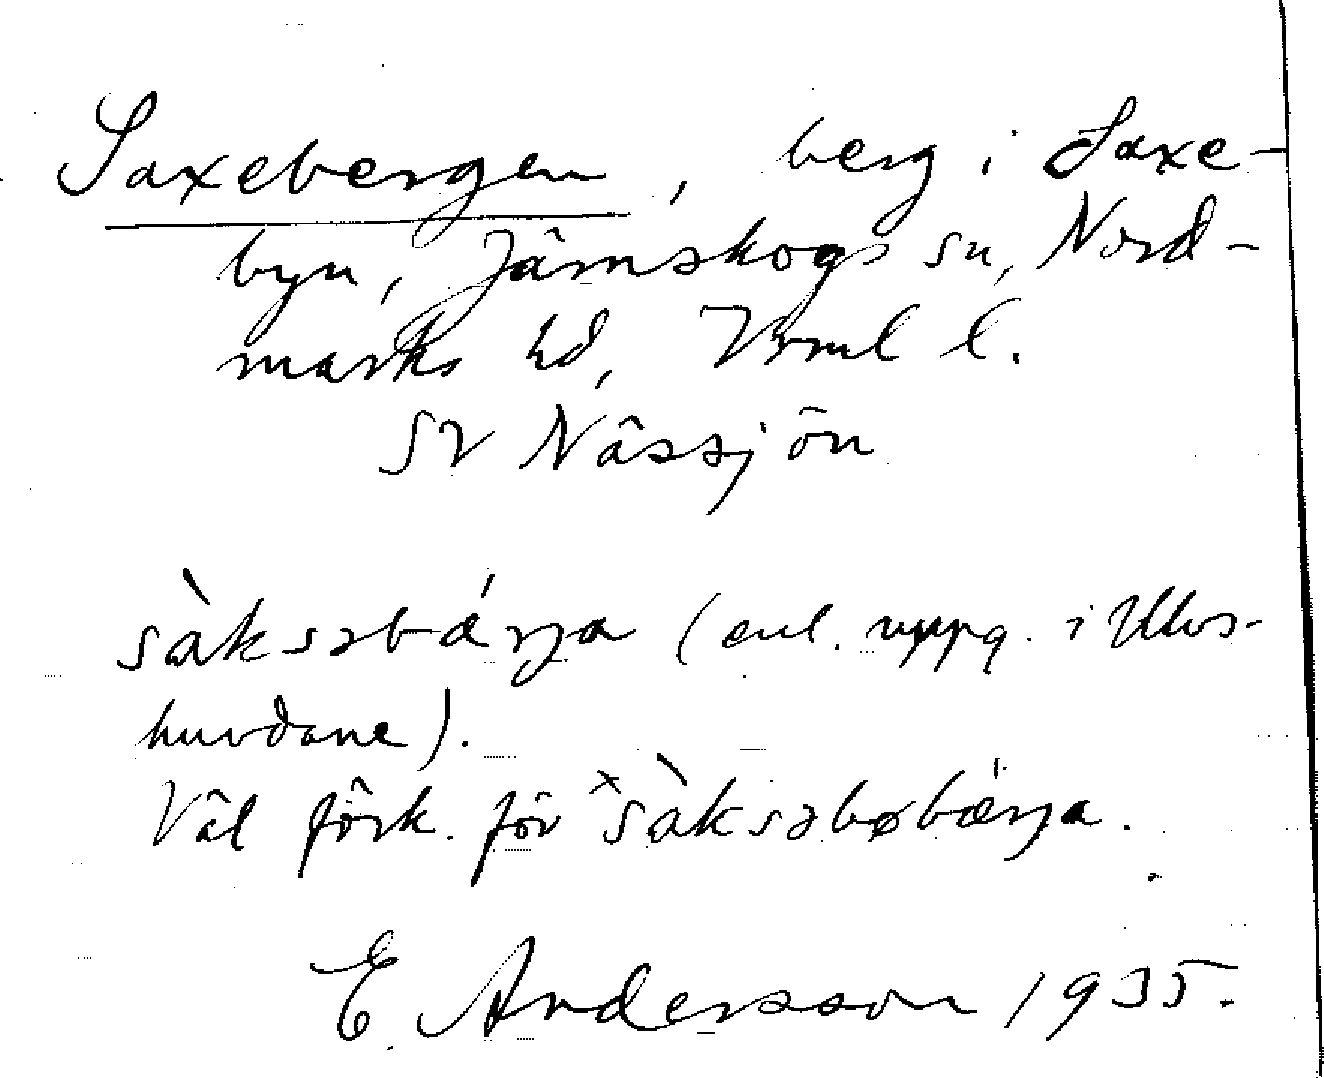 Saxebergen, berg i Saxe-
byn, Järnskogs sn, Nord-
marks hd, Vrml l.
SV Nässjön
sàksəbǽrja (enl. uppg. i Ulvs-
huvdane).
Väl förk. för *sàksəbøbǽrja.
E. Andersson 1935.